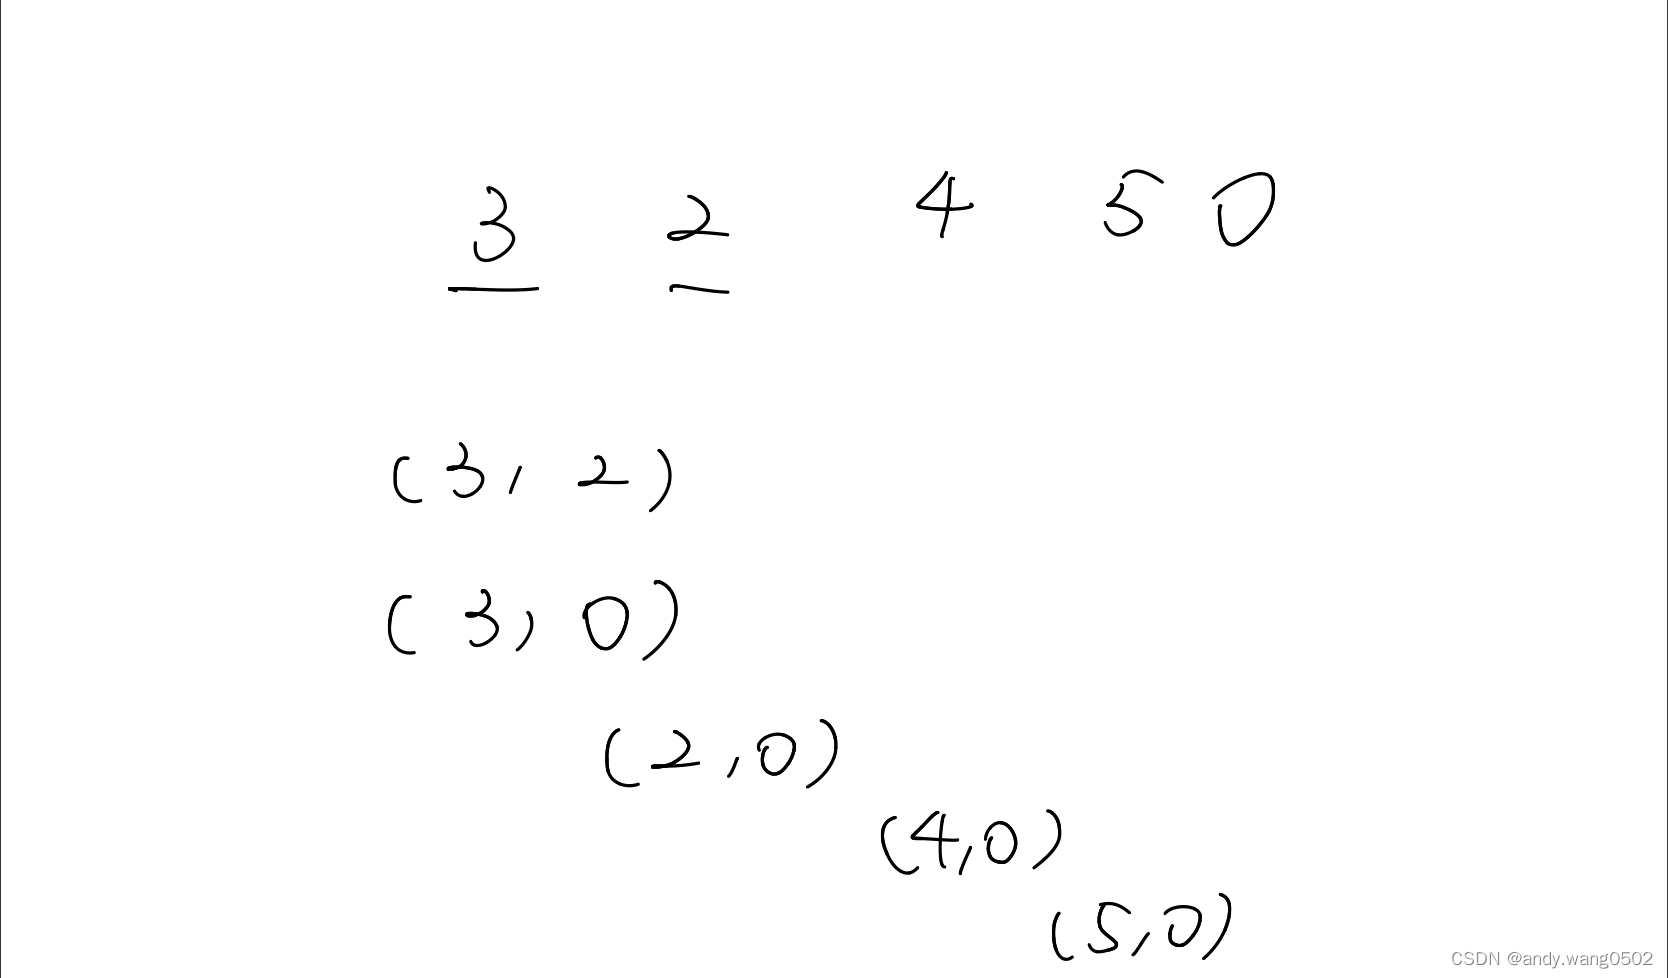 3 2 4 5 0
(3, 2)
(3, 0)
(2, 0)
(4, 0)
(5, 0)
CSDN @andy.wang0502